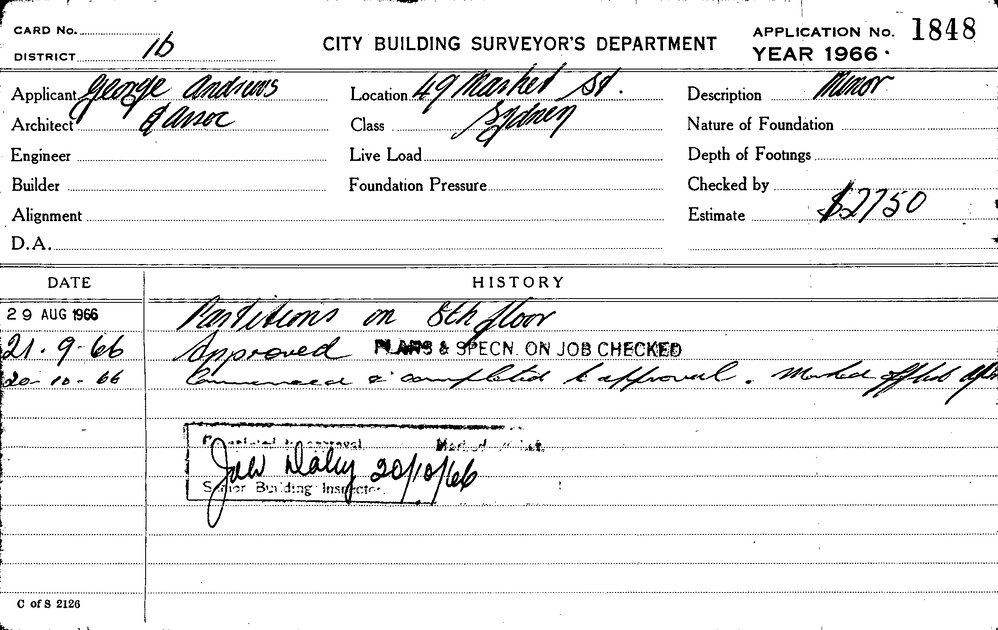 CARD No.
DISTRICT 1b
CITY BUILDING SURVEYOR'S DEPARTMENT
APPLICATION No. 1848
YEAR 1966
Applicant George Andrews
Location 49 Market St.
Description Minor
Architect & Assoc
Class Sydney
Nature of Foundation
Engineer
Live Load
Depth of Footings
Builder
Foundation Pressure
Checked by
Alignment
Estimate $2750
D.A.
DATE HISTORY
29 AUG 1966 Partitions on 8th floor
21.9.66 Approved PLANS & SPECN. ON JOB CHECKED
20-10-66 Commenced & completed to approval. Marked off list
Completed to approval Marked off list
Daley 20/10/66
Senior Building Inspector
C of S 2126